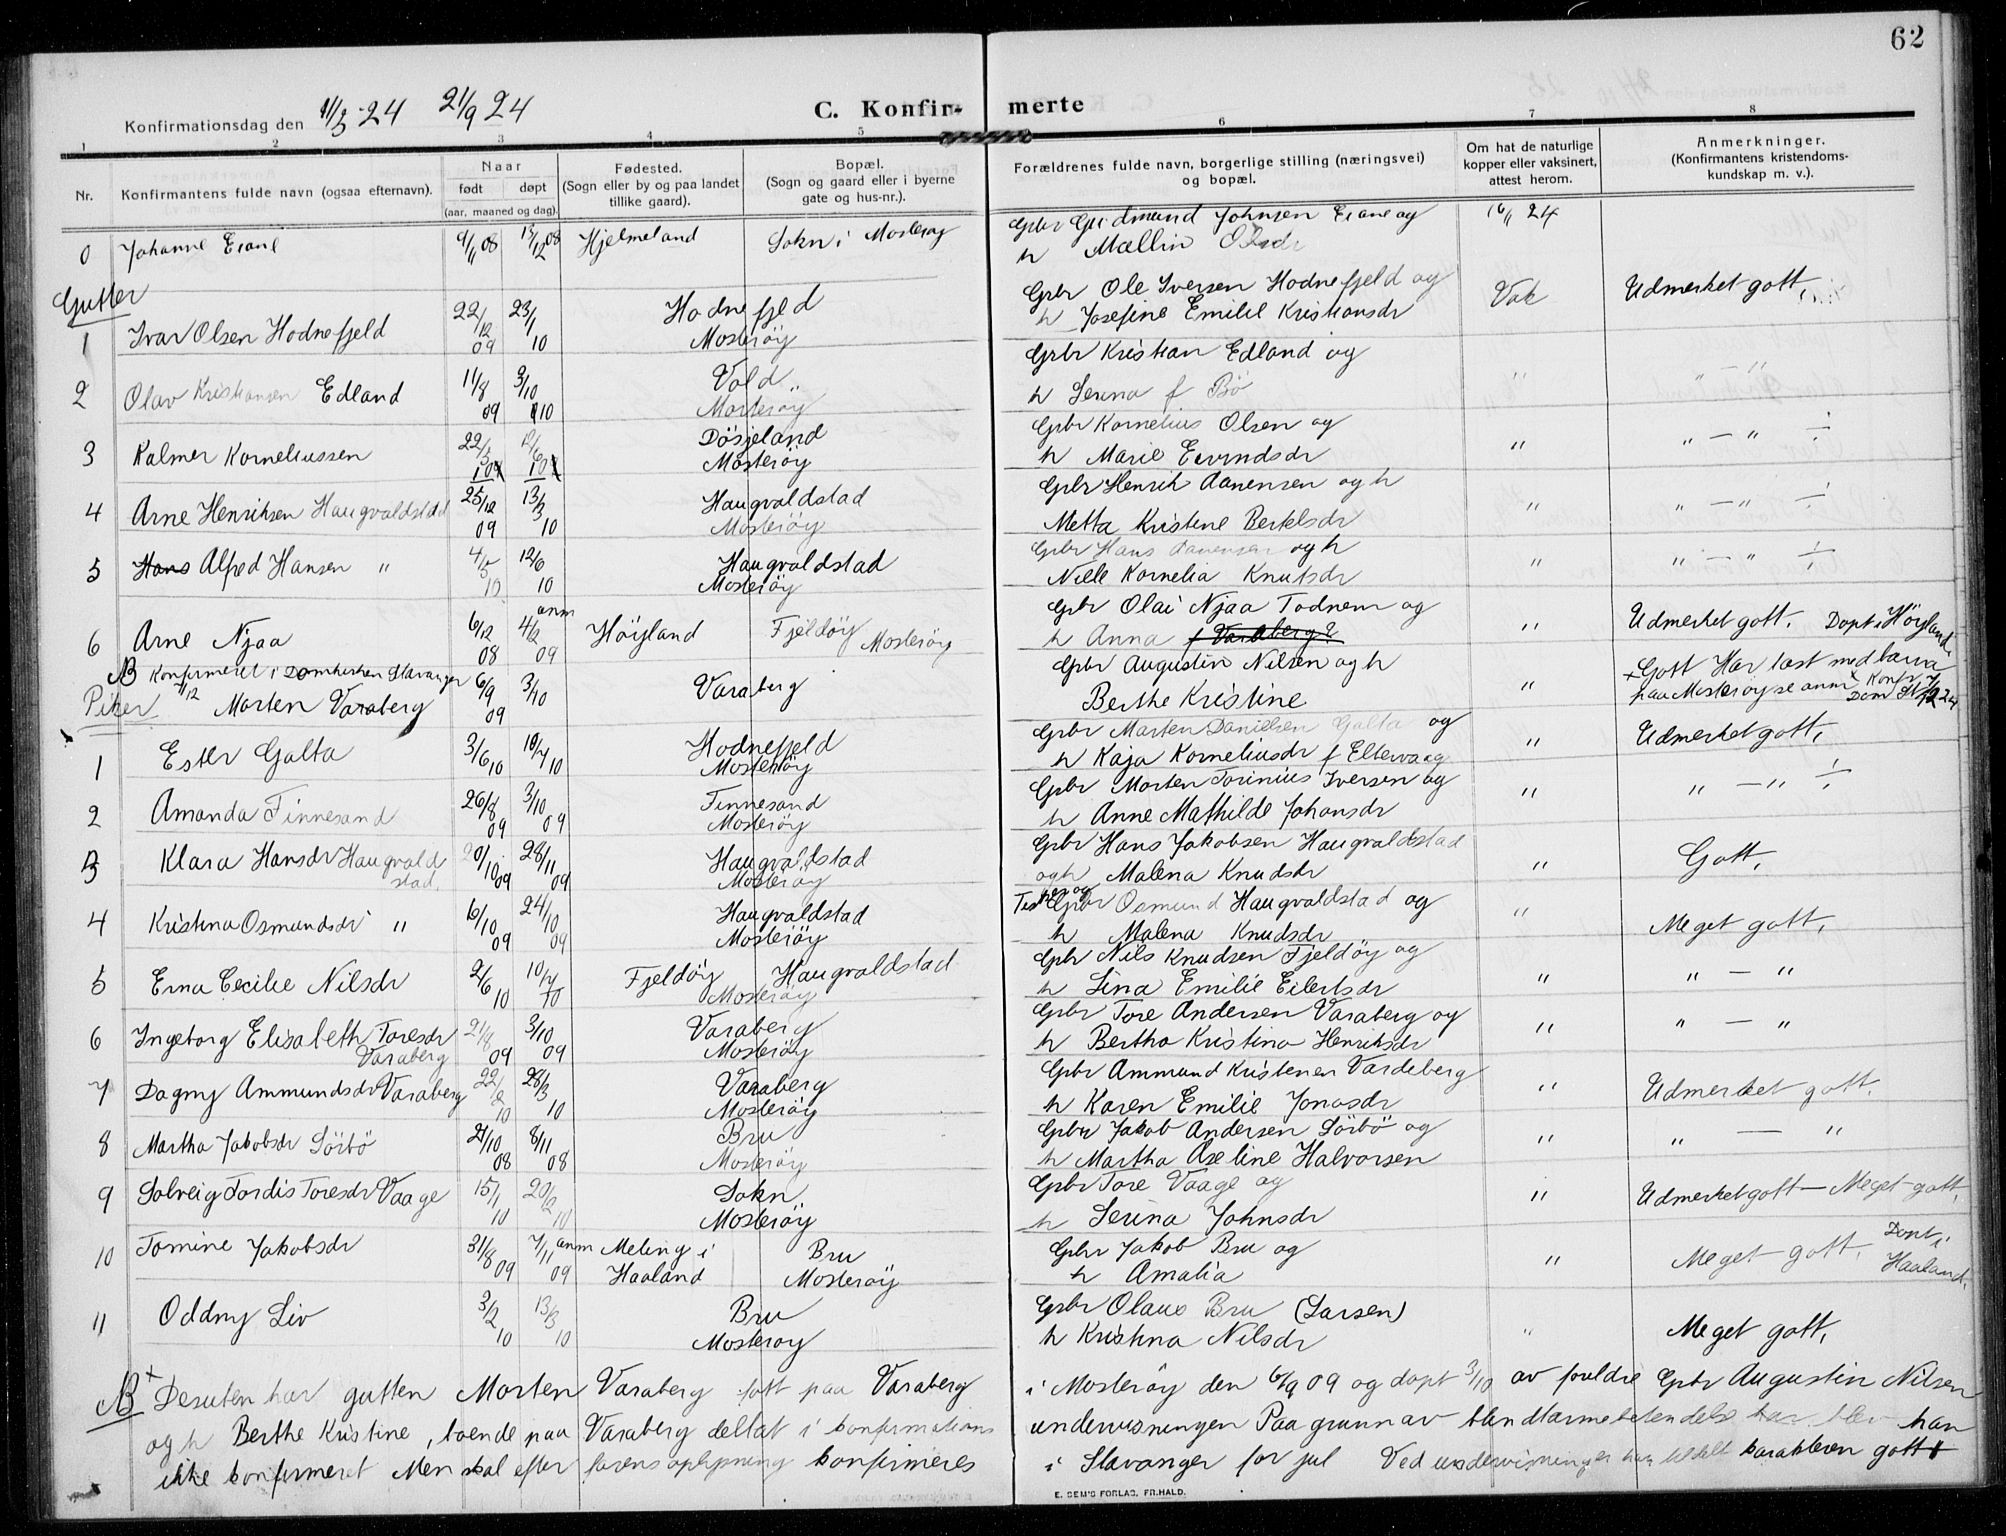 62
Konfirmationsdag den 11/5-24 21/9 24
C. Konfirmerte
1 2 3 4 5 6 7 8
Nr.
Konfirmantens fulde navn (ogsaa efternavn).
Naar
født døpt
(aar, maaned og dag).
Fødested.
(Sogn eller by og paa landet
tillike gaard).
Bopæl.
(Sogn og gaard eller i byerne
gate og hus-nr.).
Forældrenes fulde navn, borgerlige stilling (næringsvei)
og bopæl.
Om hat de naturlige
kopper eller vaksinert,
attest herom.
Anmerkninger.
(Konfirmantens kristendoms-
kundskap m. v.).
0 Johanne Eiane Hjelmeland Sokn i Mosterøy Gbr Gudmund Johnsen Eiane og
h Mællin
Gutter
1 Ivar Olsen Hodnefjeld 22/12 09 23/1 10 Hodnefjeld Mosterøy Gbr Ole Iversen Hodnefjeld og Vak Udmerket gott
h Josefine Emilie Kristiansdr
2 Olav Kristiansen Edland 11/8 09 3/10 Vold Mosterøy Gbr Kristian Edland og " " — "
h Serina f Bö
3 Kalmer Korneliussen Dösjeland Mosterøy Gbr Kornelius Olsen og " " — " ÷
h Marie Eivindsdr
4 Arne Henriksen Haugvaldstad 25/12 09 13/3 10 Haugvaldstad Mosterøy Gbr Henrik Aanensen og h " " — " ÷
Metta Kristine Bertelsdr
5 Hans Alfred Hansen " 4/5 10 12/6 10 Haugvaldstad Mosterøy Gbr Hans Aanensen og h " " — " ÷
Nille Kornelia Knutsdr
6 Arne Njaa 6/12 08 4/2 09 anm Höyland Fjeldöy Mosterøy Gbr Olai Njaa Todnem og " Udmerket gott. Døpt i Höyland.
h Anna f Varaberg?
NB Konfirmeret i Domkirken Stavanger
7/12 Morten Varaberg 6/9 09 3/10 Varaberg Gbr Augustin Nilsen og h " + Gott Har læst med barna
Berthe Kristine paa Mosterøy se anm
Piker
1 Ester Galta 3/6 10 10/7 10 Hodnefjeld Mosterøy Gbr Marten Danielsen Galta og " Udmerket gott.
h Kaja Korneliusdr f Eltervaag
2 Amanda Finnesand 26/8 09 3/10 09 Finnesand Mosterøy Gbr Morten Torinius Iversen og " " — " ÷
h Anne Mathilde Johansdr
3 Klara Hansdr Haugvaldstad. 20/10 09 28/11 09 Haugvaldstad Mosterøy Gbr Hans Jakobsen Haugvaldstad " Gott.
og h Malena Knudsdr
4 Kristina Osmundsdr " 6/10 09 24/10 09 Haugvaldstad Mosterøy Gbr Osmund Haugvaldstad og " Meget gott.
h Malena Knudsdr
5 Erna Cecilie Nilsdr 2/6 10 10/7 10 Fjeldöy Haugvaldstad Mosterøy Gbr Nils Knudsen Fjeldöy og " " — "
h Lina Emilie Eilertsdr
6 Ingeborg Elisabeth Toresdr Varaberg 21/8 09 3/10 09 Varaberg Mosterøy Gbr Tore Andersen Varaberg og " " — "
h Bertha Kristina Henriksdr
7 Dagny Ammundsdr Varaberg 22/2 10 28/3 10 Varaberg Mosterøy Gbr Ammund Kristensen Vardeberg " Udmerket gott.
h Karen Emilie Jonasdr
8 Martha Jakobsdr Sörbö 21/10 08 8/11 08 Bru Mosterøy Gbr Jakob Andersen Sörbö og " " — "
h Martha Axeline Halvorsen
9 Solveig Tordis Toresdr Vaage 15/1 10 20/2 10 Sokn Mosterøy Gbr Tore Vaage og " Udmerket gott — Meget gott.
h Serina Johnsdr
10 Tomine Jakobsdr 31/8 09 7/11 09 anm Meling i Haaland Bru Mosterøy Gbr Jakob Bru og " Meget gott. Døpt i Haaland.
h Amalia
11 Oddny Liv 3/2 10 13/3 10 Bru Mosterøy Gbr Olaus Bru (Larsen) " Meget gott.
h Kristina Nilsdr
NB + Desuten har gutten Morten Varaberg født paa Varaberg i Mosterøy den 6/9 09 og døpt 3/10 av foreldre Gbr Augustin Nilsen
og h Berthe Kristine, boende paa Varaberg deltat i konfirmations undervisningen Paa grunn av blindtarmsbetendelse har blev han
ikke konfirmeret Men skal efter farens oplysning konfirmeres i Stavanger før jul Ved undervisningen han tildelt karakteren gott
E. SEM'S FORLAG, FR.HALD.